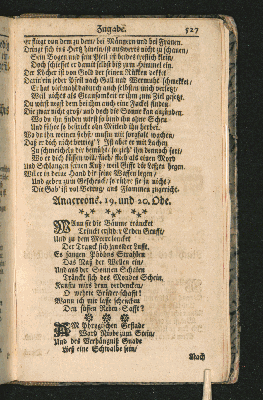 Zugabe. 527
er fleugt von dem zu dem/ bey Männern und bey Frauen.
Dringt sich ins Hertz hinein/ ist auswerts nicht zu schauen/
Sein Bogen und sein Pfeil ist beydes klein
Doch schiest er damit biß zum Himmel ein.
Der Köcher ist von Gold der seinen Rükken dekket
Darin ein jeder Pfeil nach Gall und Wermuht schmekket/
Er hat vielmahl dadurch auch selbsten mich verletzt/
Weil nichts als Grausamkeit er ihm zum Ziel gesetzt.
Du wirst nechst dem bei ihm auch eine Fackel finden
Die zwar nicht groß/ und doch die Sonne kan anzünden.
Wo du ihn finden wirst so bind ihn ohne Scheu
Und führe ihn
Wo du ihn weinen siehst/ must ihn wol
Daß er dich nicht betrieg'! Ist aber er mit lachen
Zu schmeicheln dir bemüht/ so zieh' ihn dennoch fort/
Wo er dich küssen will/ fleuch/ als einen Mord
Und Schlangen seinen Kuß/ weil Gifft die Lefzen hegen.
Will er in deine Hand dir seine Waffen legen/
Und geben zum Geschenck/ so rühre sie ja nicht/
Die Gab' ist vol Betrug/ aus Flammen zugericht.
Anacreons. 19. und 20. Ode.
WAnn sie die Bäume träncket
Trinckt erst der Erden Grufft/
Und zu dem Meer
Der Tranck sich
Es saugen Phöbus Strahlen
Das Naß der Wellen ein/
Und aus der Sonnen Schalen
Tränckt sich des Monden Schein.
O wehrte Brüderschafft!
Wann ich mir laße schencken
Den süssen Reben-Safft?
AM Phrygischen Gestade
Ward Niobe zum Stein/
Und des Verhängniß Gnade
Ließ eine Schwalbe seyn/
Nach